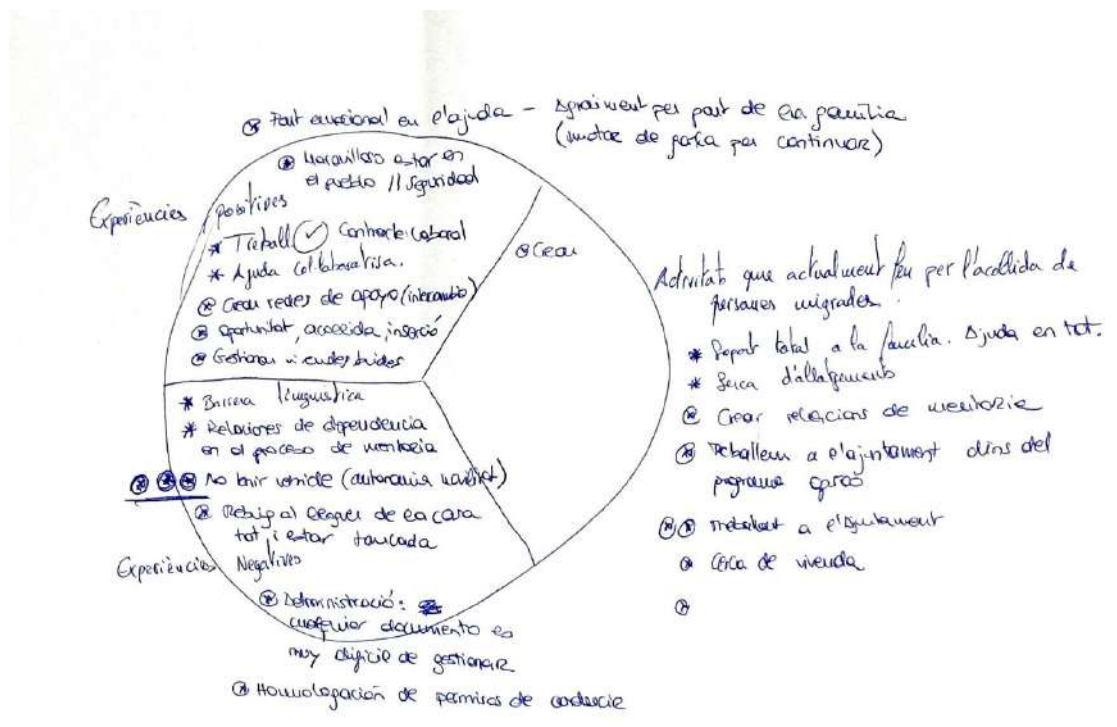 Fort emocional en l'ajuda – Agraiment per part de la família
(motor de força per continuar)
Maravilloso estar en
el pueblo // Seguridad
Experiències positives
* Treball ✓ Contracte laboral
* Ajuda col·laborativa.
Crear redes de apoyo (intercambio)
Oportunitat, acollida, inserció
Gestionar viviendas buides
* Barrera lingüística
* Relaciones de dependencia
en el proceso de mentoria
No tenir vehicle (autonomia movilitat)
Rebuig al lloguer de la casa
tot i estar tancada
Experiències Negatives
Administració:
cualquier documento es
muy dificil de gestionar
Homologación de permisos de conducir
Crear
Activitats que actualment feu per l'acollida de
persones migrades.
* Suport total a la família. Ajuda en tot.
* Serca d'allotjaments
Crear relacions de mentoria
Treballem a l'ajuntament dins del
programa
treballant a l'Ajuntament
Cerca de vivenda